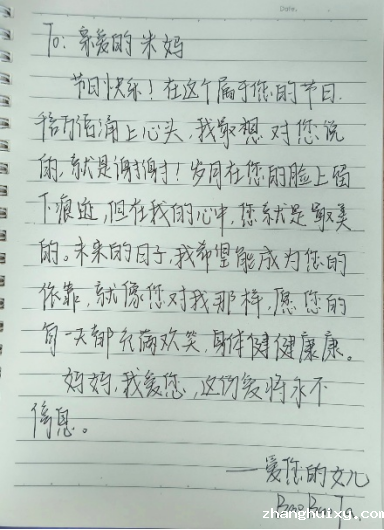 Date:
To: 亲爱的 米妈
节日快乐！在这个属于您的节日，
千言万语涌上心头，我最想对您说
的，就是谢谢！岁月在您的脸上留
下痕迹，但在我的心中，您就是最美
的。未来的日子，我希望能成为您的
依靠，就像您对我那样，愿您的
每一天都充满欢笑，身体健健康康。
妈妈，我爱您，这份爱将永不
停息。
——爱您的女儿
zhanghuixy.com